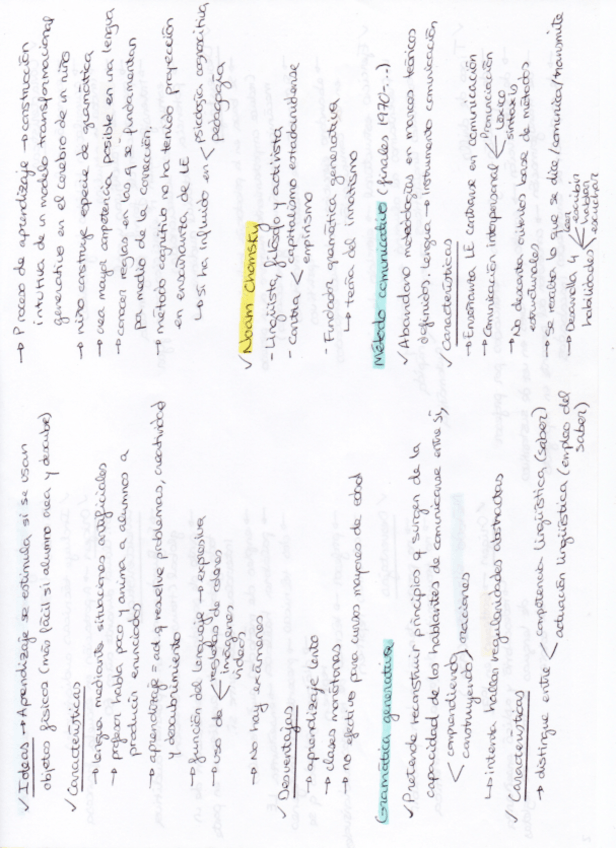 ✓ Ideas → Aprendizaje se estimula si se usan
objetos físicos (más fácil si alumno crea y descubre)
✓ Características
→ lengua mediante situaciones artificiales
→ profesor habla poco y anima a alumnos a
producir enunciados
→ aprendizaje = act. q resuelve problemas, creatividad
y descubrimiento
→ función del lenguaje → expresiva
→ uso de < regletas de colores
imágenes
videos
→ No hay exámenes
✓ Desventajas
→ aprendizaje lento
→ clases monótonas
→ no efectivo para cursos mayores de edad
Gramática generativa
✓ Pretende reconstruir principios q surgen de la
capacidad de los hablantes de comunicarse entre sí,
< comprendiendo
construyendo > oraciones
↳ intenta hallar regularidades abstractas
✓ Características
→ distingue entre < competencia lingüística (saber)
actuación lingüística (empleo del
saber)
→ Proceso de aprendizaje → construcción
intuitiva de un modelo transformacional
generativo en el cerebro de un niño
→ niño construye especie de gramática
→ crea mayor competencia posible en una lengua
→ conocer reglas en las q se fundamentan
por medio de la corrección.
→ método cognitivo no ha tenido proyección
en enseñanza de LE
↳ sí ha influido en < psicología cognoscitiva
pedagogía
✓ Noam Chomsky
- Lingüista, filósofo y activista
- contra < capitalismo estadounidense
empirismo
- Fundador gramática generativa
↳ teoría del innatismo
Método comunicativo (finales 1970-...)
✓ Abandono metodologías en marcos teóricos
definidos. Lengua → instrumento comunicación
✓ Características
→ Enseñanza LE centrarse en comunicación
→ Comunicación interpersonal < Pronunciación
léxico
sintaxis
→ No descarta criterios base de métodos
estructurales
→ Se resalta lo que se dice/comunica/transmite
→ Desarrolla 4 habilidades < leer
escribir
hablar
escuchar